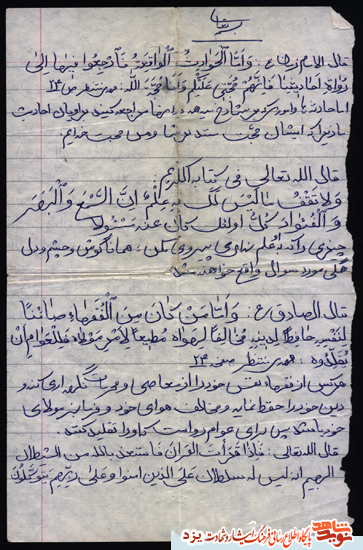 بسمه تعالی
قال الامام زمان ع: وَ اَمَّا الْحَوادِثُ الْواقِعَةُ فَارْجِعُوا فیها اِلی
رُواةِ اَحادیثِنا فَاِنَّهُمْ حُجَّتی عَلَیْکُم وَ اَنَا حُجَّةُ اللهِ: مهدی منتظر ص ۲۳
اما حادثه‌ها
احادیث
ما زیرا که ایشان حجت منند بر شما و من حجت خدایم
قال الله تعالی فی کتابه الکریم
وَلا تَقْفُ مالَیْسَ لَکَ بِهِ عِلْمٌ اِنَّ السَّمْعَ وَالْبَصَرَ
وَالْفُؤادَ کُلُّ اولئِکَ کانَ عَنْهُ مَسْئولاً
چیزی را که علم نداری پیروی مکن، همانا گوش و چشم و دل
همگی مورد سوال واقع خواهند شد
قال الصادق ع: وَ اَمّا مَنْ کانَ مِنَ الْفُقَهاءِ صائناً
لِنَفْسِهِ حافِظاً لِدینِهِ مُخالِفاً لِهَواهُ مُطیعاً لِاَمْرِ مَوْلاهُ فَلِلْعَوامِ اَنْ
یُقَلِّدُوهُ: مهدی منتظر صفحه ۲۳
هر کس از فقها نفس خود را از معاصی و محرمات نگهداری کند و
دین خود را حفظ نماید و مخالف هوای خود و فرمانبر مولای
خود باشد پس برای عوام رواست که او را تقلید کنند:
قال الله تعالی: فَاِذا قَرَأْتَ الْقُرآنَ فَاسْتَعِذْ بِاللهِ مِنَ الشَّیْطانِ
الرجیم انه لیس له سلطان علی الذین امنوا و علی ربهم یتوکلون
نوید شاهد
پایگاه اطلاع رسانی فرهنگ ایثار و شهادت یزد